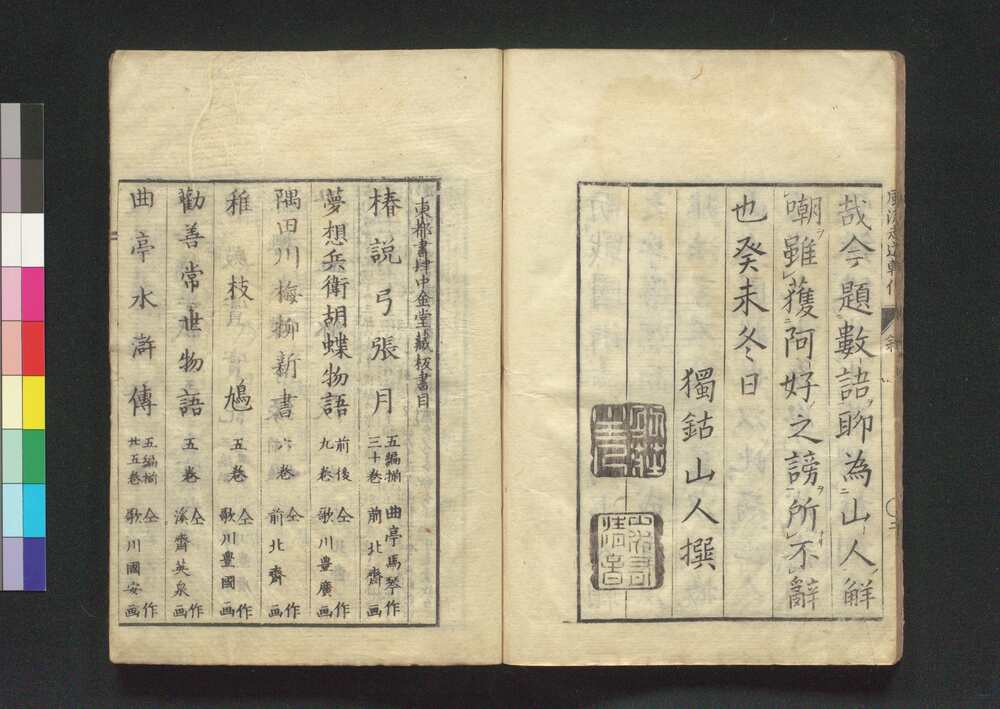 哉今題數語聊為山人解
嘲雖獲阿好之謗所不辭
也癸未冬日
獨鈷山人撰
東都書肆中金堂藏板書目
椿說弓張月 五編揃 三十卷 曲亭馬琴作 前北齋画
夢想兵衛胡蝶物語 前後 九卷 仝作 歌川豊廣画
隅田川梅柳新書 六卷 仝作 前北齋画
稚枝鳩 五卷 仝作 歌川豊國画
勸善常世物語 五卷 仝作 溪齊英泉画
曲亭水滸傳 五編揃 廿五卷 仝作 歌川國安画